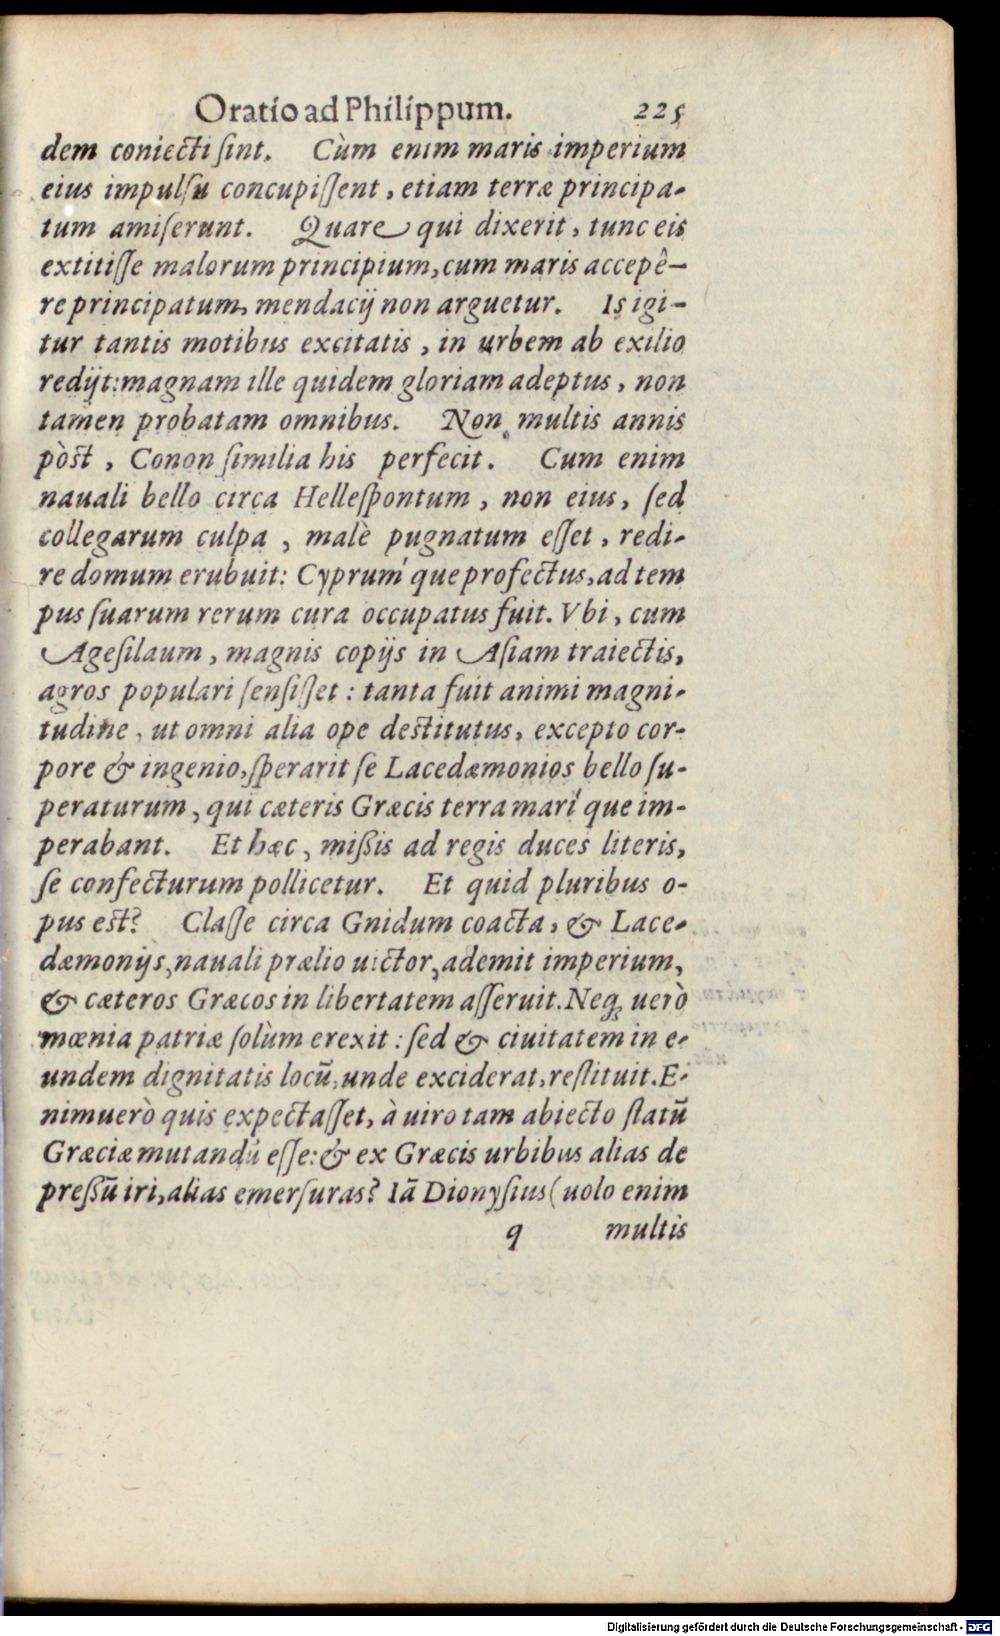 Oratio ad Philippum. 225
dem coniecti ſint. Cùm enim maris imperium
eius impulſu concupiſſent, etiam terræ principa-
tum amiſerunt. Quare qui dixerit, tunc eis
extitiſſe malorum principium, cum maris accepê-
re principatum, mendacij non arguetur. Is igi-
tur tantis motibus excitatis, in urbem ab exilio
redijt: magnam ille quidem gloriam adeptus, non
tamen probatam omnibus. Non multis annis
pòst, Conon ſimilia his perfecit. Cum enim
nauali bello circa Helleſpontum, non eius, ſed
collegarum culpa, malè pugnatum eſſet, redi-
re domum erubuit: Cyprum'que profectus, ad tem
pus ſuarum rerum cura occupatus fuit. Vbi, cum
Ageſilaum, magnis copijs in Aſiam traiectis,
agros populari ſenſiſſet: tanta fuit animi magni-
tudine, ut omni alia ope deſtitutus, excepto cor-
pore & ingenio, ſperarit ſe Lacedæmonios bello ſu-
peraturum, qui cæteris Græcis terra mari'que im-
perabant. Et hæc, mißis ad regis duces literis,
ſe confecturum pollicetur. Et quid pluribus o-
pus eſt? Claſſe circa Gnidum coacta, & Lace-
dæmonijs, nauali prælio uictor, ademit imperium,
& cæteros Græcos in libertatem aſſeruit. Neqꝫ uerò
mœnia patriæ ſolùm erexit: ſed & ciuitatem in e-
undem dignitatis locū, unde exciderat, reſtituit. E-
nimuerò quis expectaſſet, à uiro tam abiecto ſtatū
Græciæ mutandū eſſe: & ex Græcis urbibus alias de
preßū iri, alias emerſuras? Iā Dionyſius (uolo enim
q multis
Digitalisierung gefördert durch die Deutsche Forschungsgemeinschaft - DFG